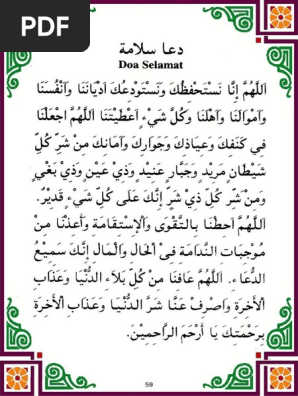 PDF
دعا سلامة
Doa Selamat
اَللّٰهُمَّ إِنَّا نَسْتَحْفِظُكَ وَنَسْتَوْدِعُكَ اَدْيَانَنَا وَاَنْفُسَنَا
وَاَمْوَالَنَا وَاَهْلَنَا وَكُلَّ شَيْءٍ اَعْطَيْتَنَا اَللّٰهُمَّ اجْعَلْنَا
فِي كَنَفِكَ وَعِيَاذِكَ وَجِوَارِكَ وَاَمَانِكَ مِنْ شَرِّ كُلِّ
شَيْطَانٍ مَرِيْدٍ وَجَبَّارٍ عَنِيْدٍ وَذِيْ عَيْنٍ وَذِيْ بَغْيٍ
وَمِنْ شَرِّ كُلِّ ذِيْ شَرٍّ إِنَّكَ عَلَى كُلِّ شَيْءٍ قَدِيْرٌ.
اَللّٰهُمَّ اَحِطْنَا بِالتَّقْوَى وَاْلاِسْتِقَامَةِ وَاَعِذْنَا مِنْ
مُوْجِبَاتِ النَّدَامَةِ فِى اْلحَالِ وَاْلمَالِ إِنَّكَ سَمِيْعُ
الدُّعَاءِ. اَللّٰهُمَّ عَافِنَا مِنْ كُلِّ بَلَاءِ الدُّنْيَا وَعَذَابِ
اْلأَخِرَةِ وَاصْرِفْ عَنَّا شَرَّ الدُّنْيَا وَعَذَابِ اْلأَخِرَةِ
بِرَحْمَتِكَ يَا اَرْحَمَ الرَّاحِمِيْنَ.
59